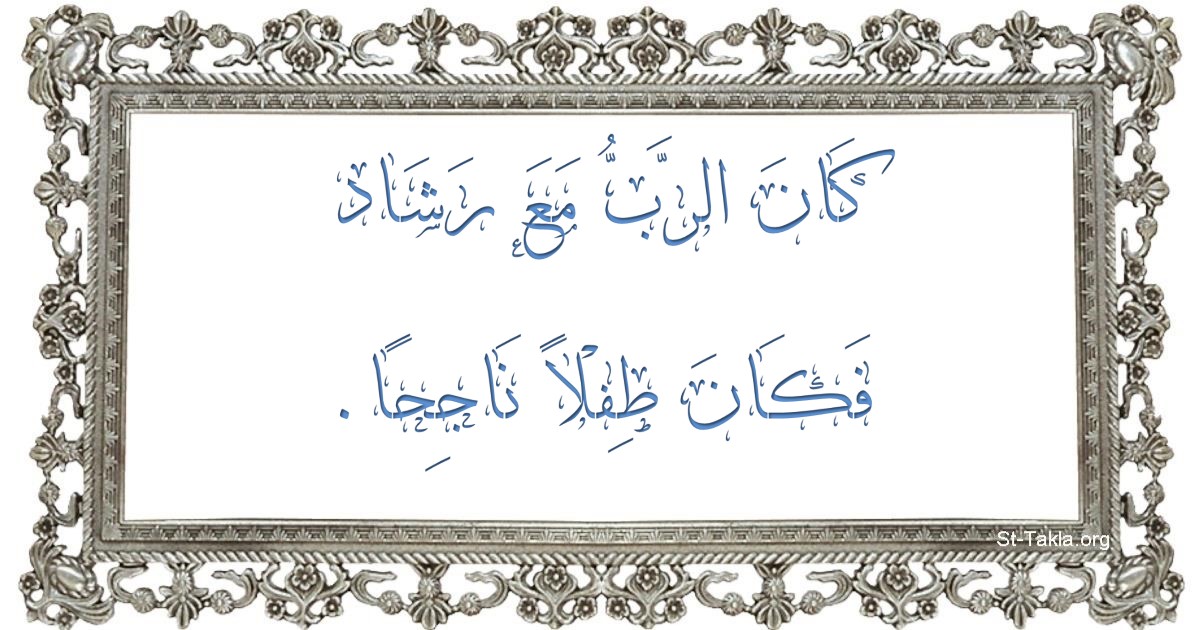 كَانَ الرَّبُّ مَعَ رَشَاد
فَكَانَ طِفْلاً نَاجِحًا .
St-Takla.org